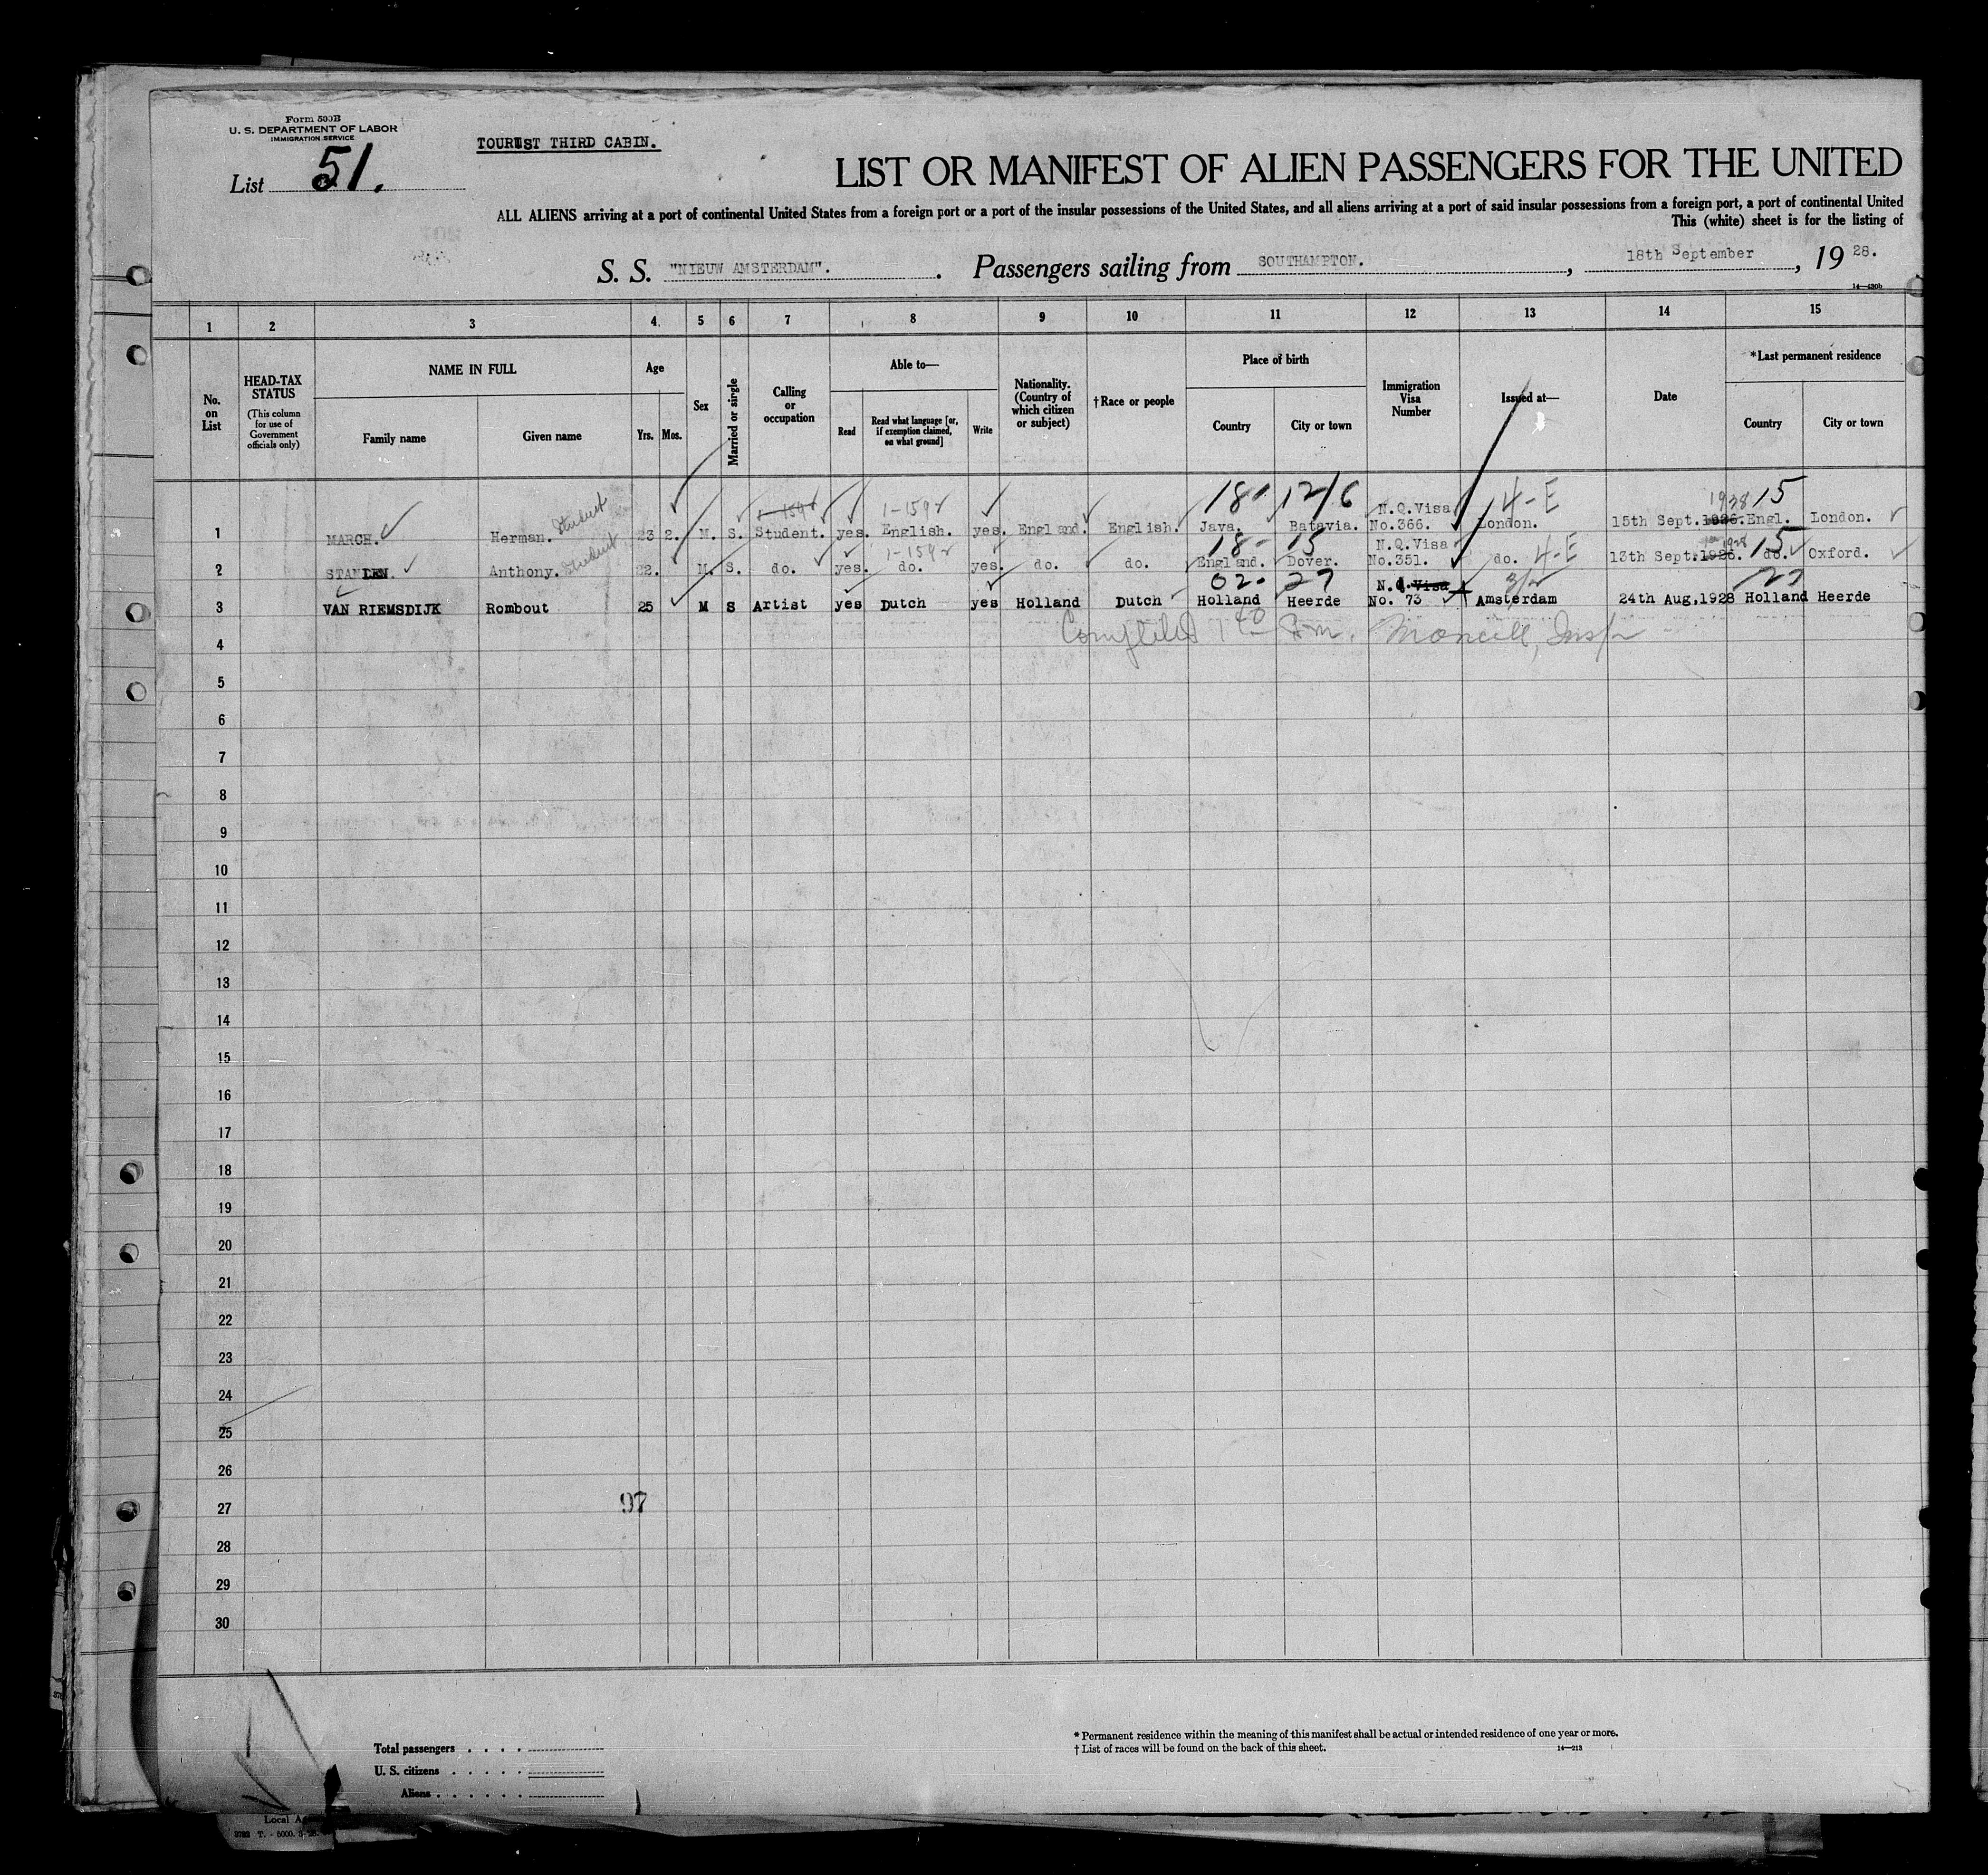 Form 500B
U. S. DEPARTMENT OF LABOR
IMMIGRATION SERVICE
List 51.
TOURIST THIRD CABIN.
LIST OR MANIFEST OF ALIEN PASSENGERS FOR THE UNITED
ALL ALIENS arriving at a port of continental United States from a foreign port or a port of the insular possessions of the United States, and all aliens arriving at a port of said insular possessions from a foreign port, a port of continental United
This (white) sheet is for the listing of
S. S. "NIEUW AMSTERDAM". Passengers sailing from SOUTHAMPTON. , 18th September , 19 28.
14—430b
1 2 3 4 5 6 7 8 9 10 11 12 13 14 15
No. on List
HEAD-TAX STATUS (This column for use of Government officials only)
NAME IN FULL
Family name Given name
Age
Yrs. Mos.
Sex
Married or single
Calling or occupation
Able to—
Read Read what language [or, if exemption claimed, on what ground] Write
Nationality. (Country of which citizen or subject)
†Race or people
Place of birth
Country City or town
Immigration Visa Number
Issued at—
Date
*Last permanent residence
Country City or town
1-1592 1-1592 18- 12/6 N.Q.Visa 4-E 1928 15
1 MARCH. Herman. Student 23 2. M. S. Student. yes. English. yes. England. English. Java. Batavia. No.366. London. 15th Sept.1926. Engl. London.
1-1592 18- 15 N.Q.Visa 1928 15
2 STANDEN. Anthony. Student 22. M. S. do. yes. do. yes. do. do. England. Dover. No.351. do. 4-E 13th Sept.1926. do. Oxford.
02- 27 N.Q.Visa 3/2 27
3 VAN RIEMSDIJK Rombout 25 M S Artist yes Dutch yes Holland Dutch Holland Heerde No. 73 Amsterdam 24th Aug,1928 Holland Heerde
4
5
6
7
8
9
10
11
12
13
14
15
16
17
18
19
20
21
22
23
24
25
26
27
97
28
29
30
Total passengers . . . .
U. S. citizens . . . . .
Aliens . . . . . .
* Permanent residence within the meaning of this manifest shall be actual or intended residence of one year or more.
† List of races will be found on the back of this sheet.
14—213
Local
3782 T. - 5000. 3-28.